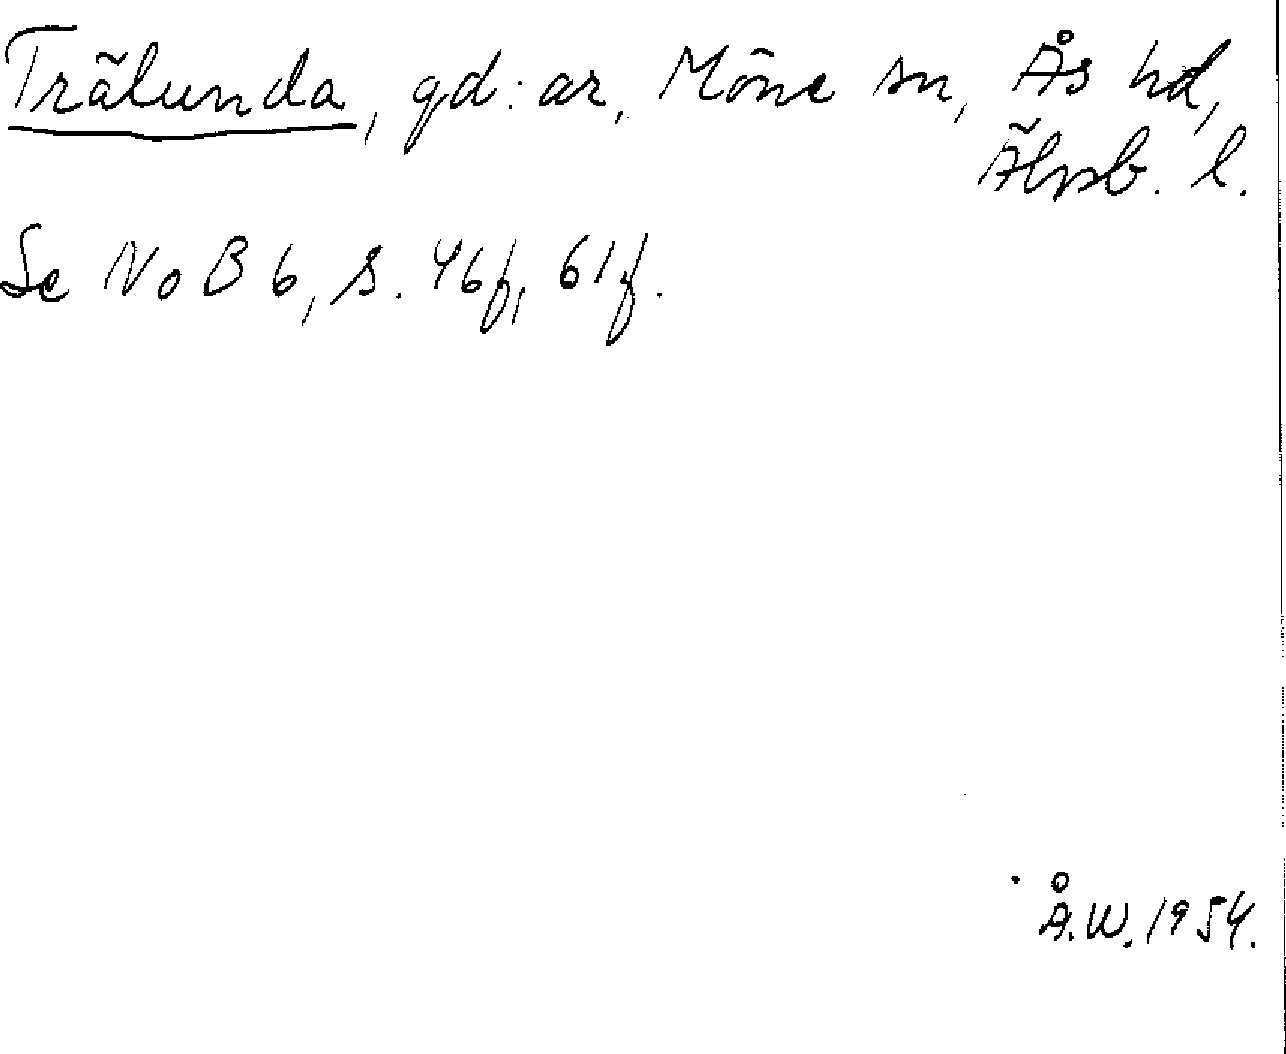 Trälunda, gd:ar, Möne sn, Ås hd,
Älvsb. l.
Se NoB 6, s. 46f, 61f.
Å.W. 1954.